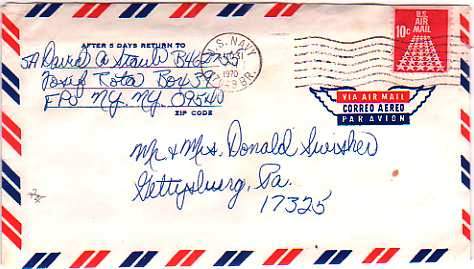 AFTER 5 DAYS RETURN TO
SA David A
Box 39
FPO N.Y. N.Y. 09540
ZIP CODE
U.S. NAVY
1970
BR.
U.S.
AIR
MAIL
10c
VIA AIR MAIL
CORREO AEREO
PAR AVION
Mr & Mrs. Donald Swisher
Gettysburg, Pa.
17325